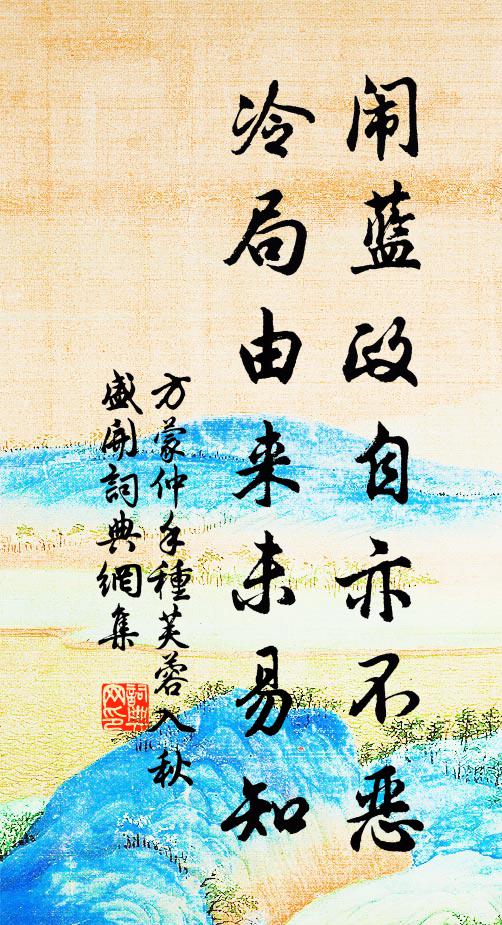 闹蓝政自亦不恶
冷局由来未易知
方蒙仲手種芙蓉入秋
盛開詞典網集
詞典网印